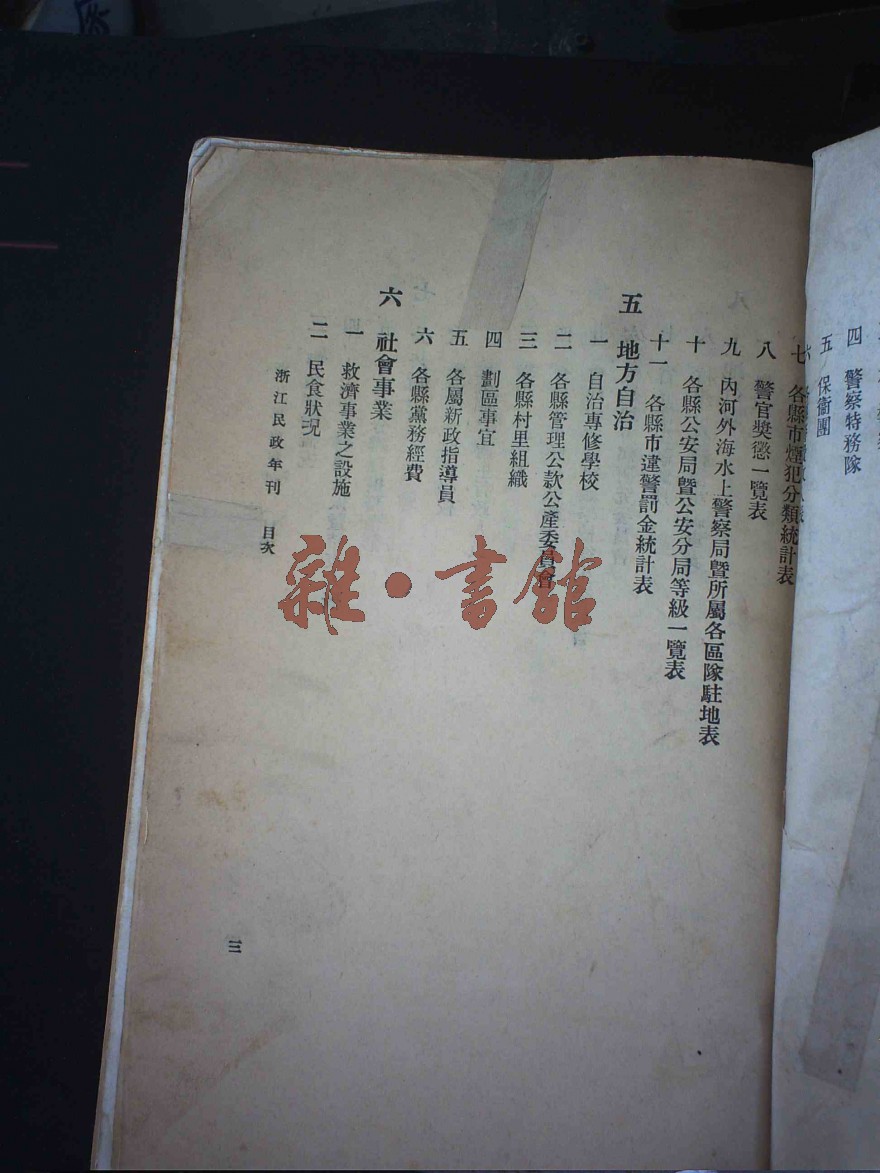 四 警察特務隊
五 保衞團
七 各縣市煙犯分類統計表
八 警官獎懲一覽表
九 內河外海水上警察局曁所屬各區隊駐地表
十 各縣公安局曁公安分局等級一覽表
十一 各縣市違警罰金統計表
五 地方自治
一 自治專修學校
二 各縣管理公款公產委員會
三 各縣村里組織
四 劃區事宜
五 各屬新政指導員
六 各縣黨務經費
六 社會事業
一 救濟事業之設施
二 民食狀況
浙江民政年刊 目次
三
雜·書館